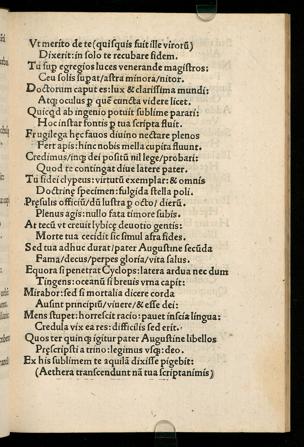 Vt merito de te (quisquis fuit ille virorū)
Dixerit: in solo te recubare fidem.
Tu sup egregios luces venerande magistros:
Ceu solis supat/astra minora/nitor.
Doctorum caput es: lux & clarissima mundi:
Atq; oculus p quē cuncta videre licet.
Quicqd ab ingenio potuit sublime parari:
Hoc instar fontis p tua scripta fluit.
Frugilega hęc fauos diuino nectare plenos
Fert apis: hinc nobis mella cupita fluunt.
Credimus/inq dei positū nil lege/probari:
Quod te contingat diue latere pater.
Tu fidei clypeus: virtutū exemplar: & omnis
Doctrinę specimen: fulgida stella poli.
Pręsulis officiū/dū lustra p octo/ dierū.
Plenus agis: nullo fata timore subis.
At tecū vt creuit lybicę deuotio gentis:
Morte tua cecidit sic simul asra fides.
Sed tua adhuc durat/pater Augustine secūda
Fama/decus/perpes gloria/vita salus.
Equora si penetrat Cyclops: latera ardua nec dum
Tingens: oceanū si breuis vrna capit:
Mirabor: sed si mortalia dicere corda
Ausint principiū/viuere/& esse dei:
Mens stuper: horrescit racio: pauet inscia lingua:
Credula vix ea res: difficilis sed erit.
Quos ter quinq; igitur pater Augustine libellos
Pręscripsti a trino: legimus vsq;: deo.
Ex his sublimem te aquilā dixisse pigebit:
(Aethera transcendunt nā tua scriptanimis)